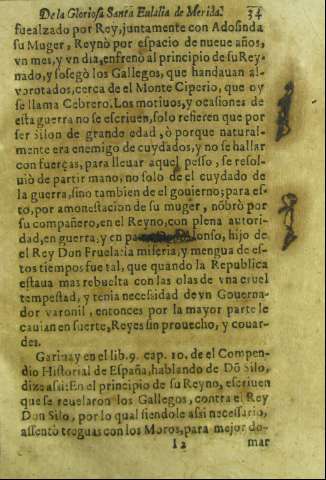 De la Gloriosa Santa Eulalia de Merida. 34
fuealzado por Rey, juntamente con Adosinda
su Muger, Reynò por espacio de nueue años,
vn mes, y vn dia, enfrenò al principio de su Rey-
nado, y sosegò los Gallegos, que handauan al-
vorotados, cerca de el Monte Ciperio, que oy
se llama Cebrero. Los motiuos, y ocasiones de
esta guerra no se escriuen, solo refieren que por
ser Silon de grande edad, ò porque natural-
mente era enemigo de cuydados, y no se hallar
con fuerças, para lleuar aquel pesso, se resol-
uiò de partir mano, no solo de el cuydado de
la guerra, sino tambien de el gouierno; para es-
to, por amonestacion de su muger, nõbrò por
su compañero, en el Reyno, con plena autori-
dad, en guerra, y en lonso, hijo de
el Rey Don Fruela: la miseria, y mengua de es-
tos tiempos fue tal, que quando la Republica
estaua mas rebuelta con las olas de vna cruel
tempestad, y tenia necessidad de vn Gouerna-
dor varonil, entonces por la mayor parte le
cauian en suerte, Reyes sin prouecho, y couar-
des.
Gariuay en el lib. 9. cap. 10. de el Compen-
dio Historial de España, hablando de Dõ Silo,
dize assi: En el principio de su Reyno, escriuen
que se reuelaron los Gallegos, contra el Rey
Don Silo, por lo qual siendole assi necessario,
assentò treguas con los Moros, para mejor do-
I 2 mar